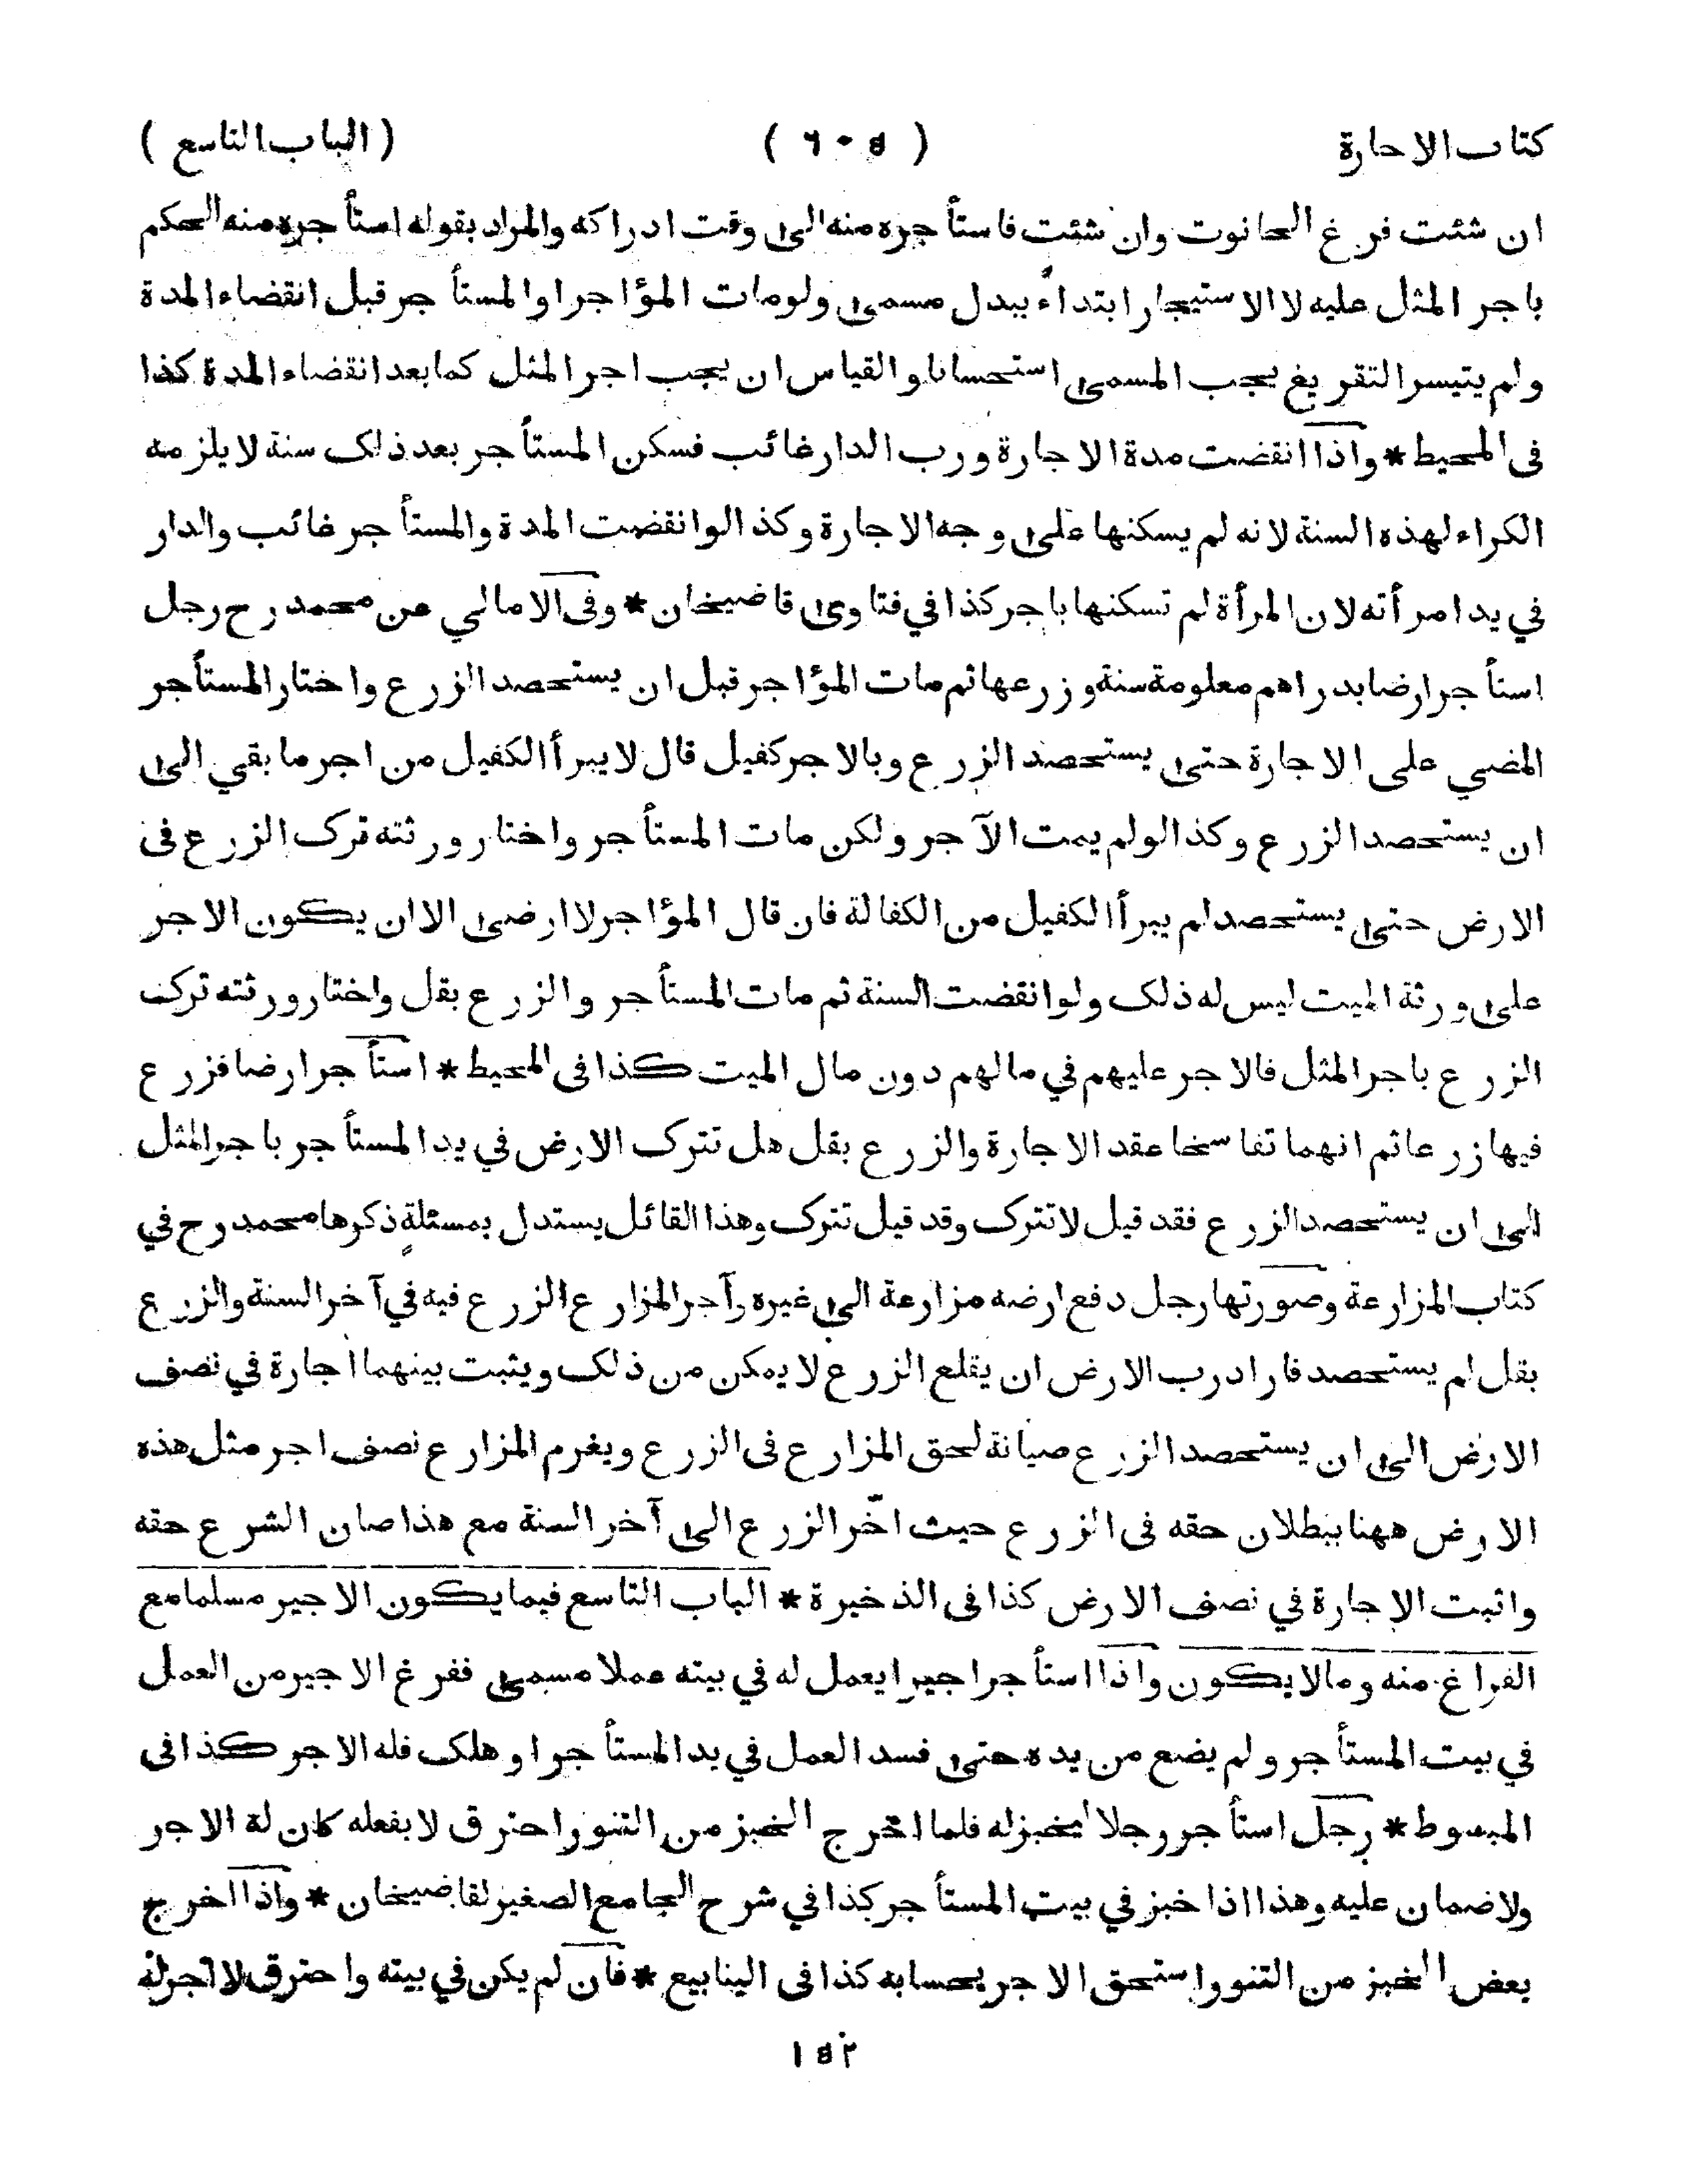 كتاب الاجارة ( ٦٠٥ ) ( الباب التاسع )
ان شئت فرغ الحانوت وان شئت فاستأجره منه الى وقت ادراكه والمراد بقوله استأجره منه الحكم
باجر المثل عليه لا الاستيجار ابتداءً ببدل مسمى ولو مات المؤاجر او المستأجر قبل انقضاء المدة
ولم يتيسر التفريغ يجب المسمى استحسانا والقياس ان يجب اجر المثل كما بعد انقضاء المدة كذا
فى المحيط * واذا انقضت مدة الاجارة ورب الدار غائب فسكن المستأجر بعد ذلك سنة لا يلزمه
الكراء لهذه السنة لانه لم يسكنها على وجه الاجارة وكذا لو انقضت المدة والمستأجر غائب والدار
في يد امرأته لان المرأة لم تسكنها باجر كذا في فتاوى قاضيخان * وفى الامالي عن محمد رح رجل
استأجر ارضا بدراهم معلومة سنة وزرعها ثم مات المؤاجر قبل ان يستحصد الزرع واختار المستأجر
المضي على الاجارة حتى يستحصد الزرع وبالاجر كفيل قال لا يبرأ الكفيل من اجر ما بقي الى
ان يستحصد الزرع وكذا لو لم يمت الآجر ولكن مات المستأجر واختار ورثته ترك الزرع فى
الارض حتى يستحصد لم يبرأ الكفيل من الكفالة فان قال المؤاجر لا ارضى الا ان يكون الاجر
على ورثة الميت ليس له ذلك ولو انقضت السنة ثم مات المستأجر والزرع بقل واختار ورثته ترك
الزرع باجر المثل فالاجر عليهم في مالهم دون مال الميت كذا فى المحيط * استأجر ارضا فزرع
فيها زرعا ثم انهما تفاسخا عقد الاجارة والزرع بقل هل تترك الارض في يد المستأجر باجر المثل
الى ان يستحصد الزرع فقد قيل لا تترك وقد قيل تترك وهذا القائل يستدل بمسئلةٍ ذكرها محمد رح في
كتاب المزارعة وصورتها رجل دفع ارضه مزارعة الى غيره وآخر المزارع الزرع فيه في آخر السنة والزرع
بقل لم يستحصد فاراد رب الارض ان يقلع الزرع لا يمكن من ذلك ويثبت بينهما اجارة في نصف
الارض الى ان يستحصد الزرع صيانة لحق المزارع فى الزرع ويغرم المزارع نصف اجر مثل هذه
الارض ههنا ببطلان حقه فى الزرع حيث اخّر الزرع الى آخر السنة مع هذا صان الشرع حقه
واثبت الاجارة في نصف الارض كذا فى الذخيرة * الباب التاسع فيما يكون الاجير مسلما مع
الفراغ منه وما لا يكون واذا استأجر اجيرا يعمل له في بيته عملا مسمى ففرغ الاجير من العمل
في بيت المستأجر ولم يضع من يده حتى فسد العمل في يد المستأجر او هلك فله الاجر كذا فى
المبسوط * رجل استأجر رجلا ليخبز له فلما اخرج الخبز من التنور احترق لا بفعله كان له الاجر
ولا ضمان عليه وهذا اذا خبز في بيت المستأجر كذا في شرح الجامع الصغير لقاضيخان * واذا اخرج
بعض الخبز من التنور استحق الاجر بحسابه كذا فى الينابيع * فان لم يكن في بيته واحترق لا اجر له
١٥٢